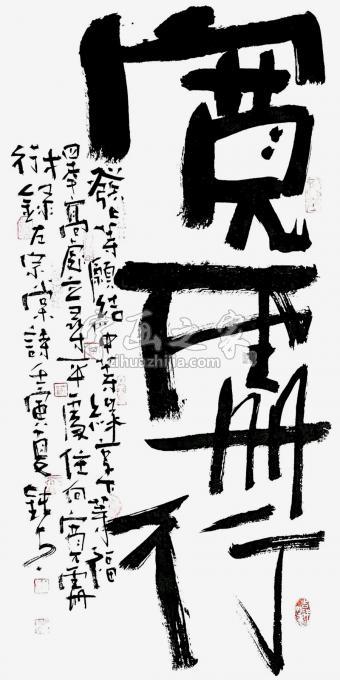 寬處行
發上等願結中等緣享下等福
擇高處立尋平處住向寬處
行錄左宗棠詩壬寅夏
画之家